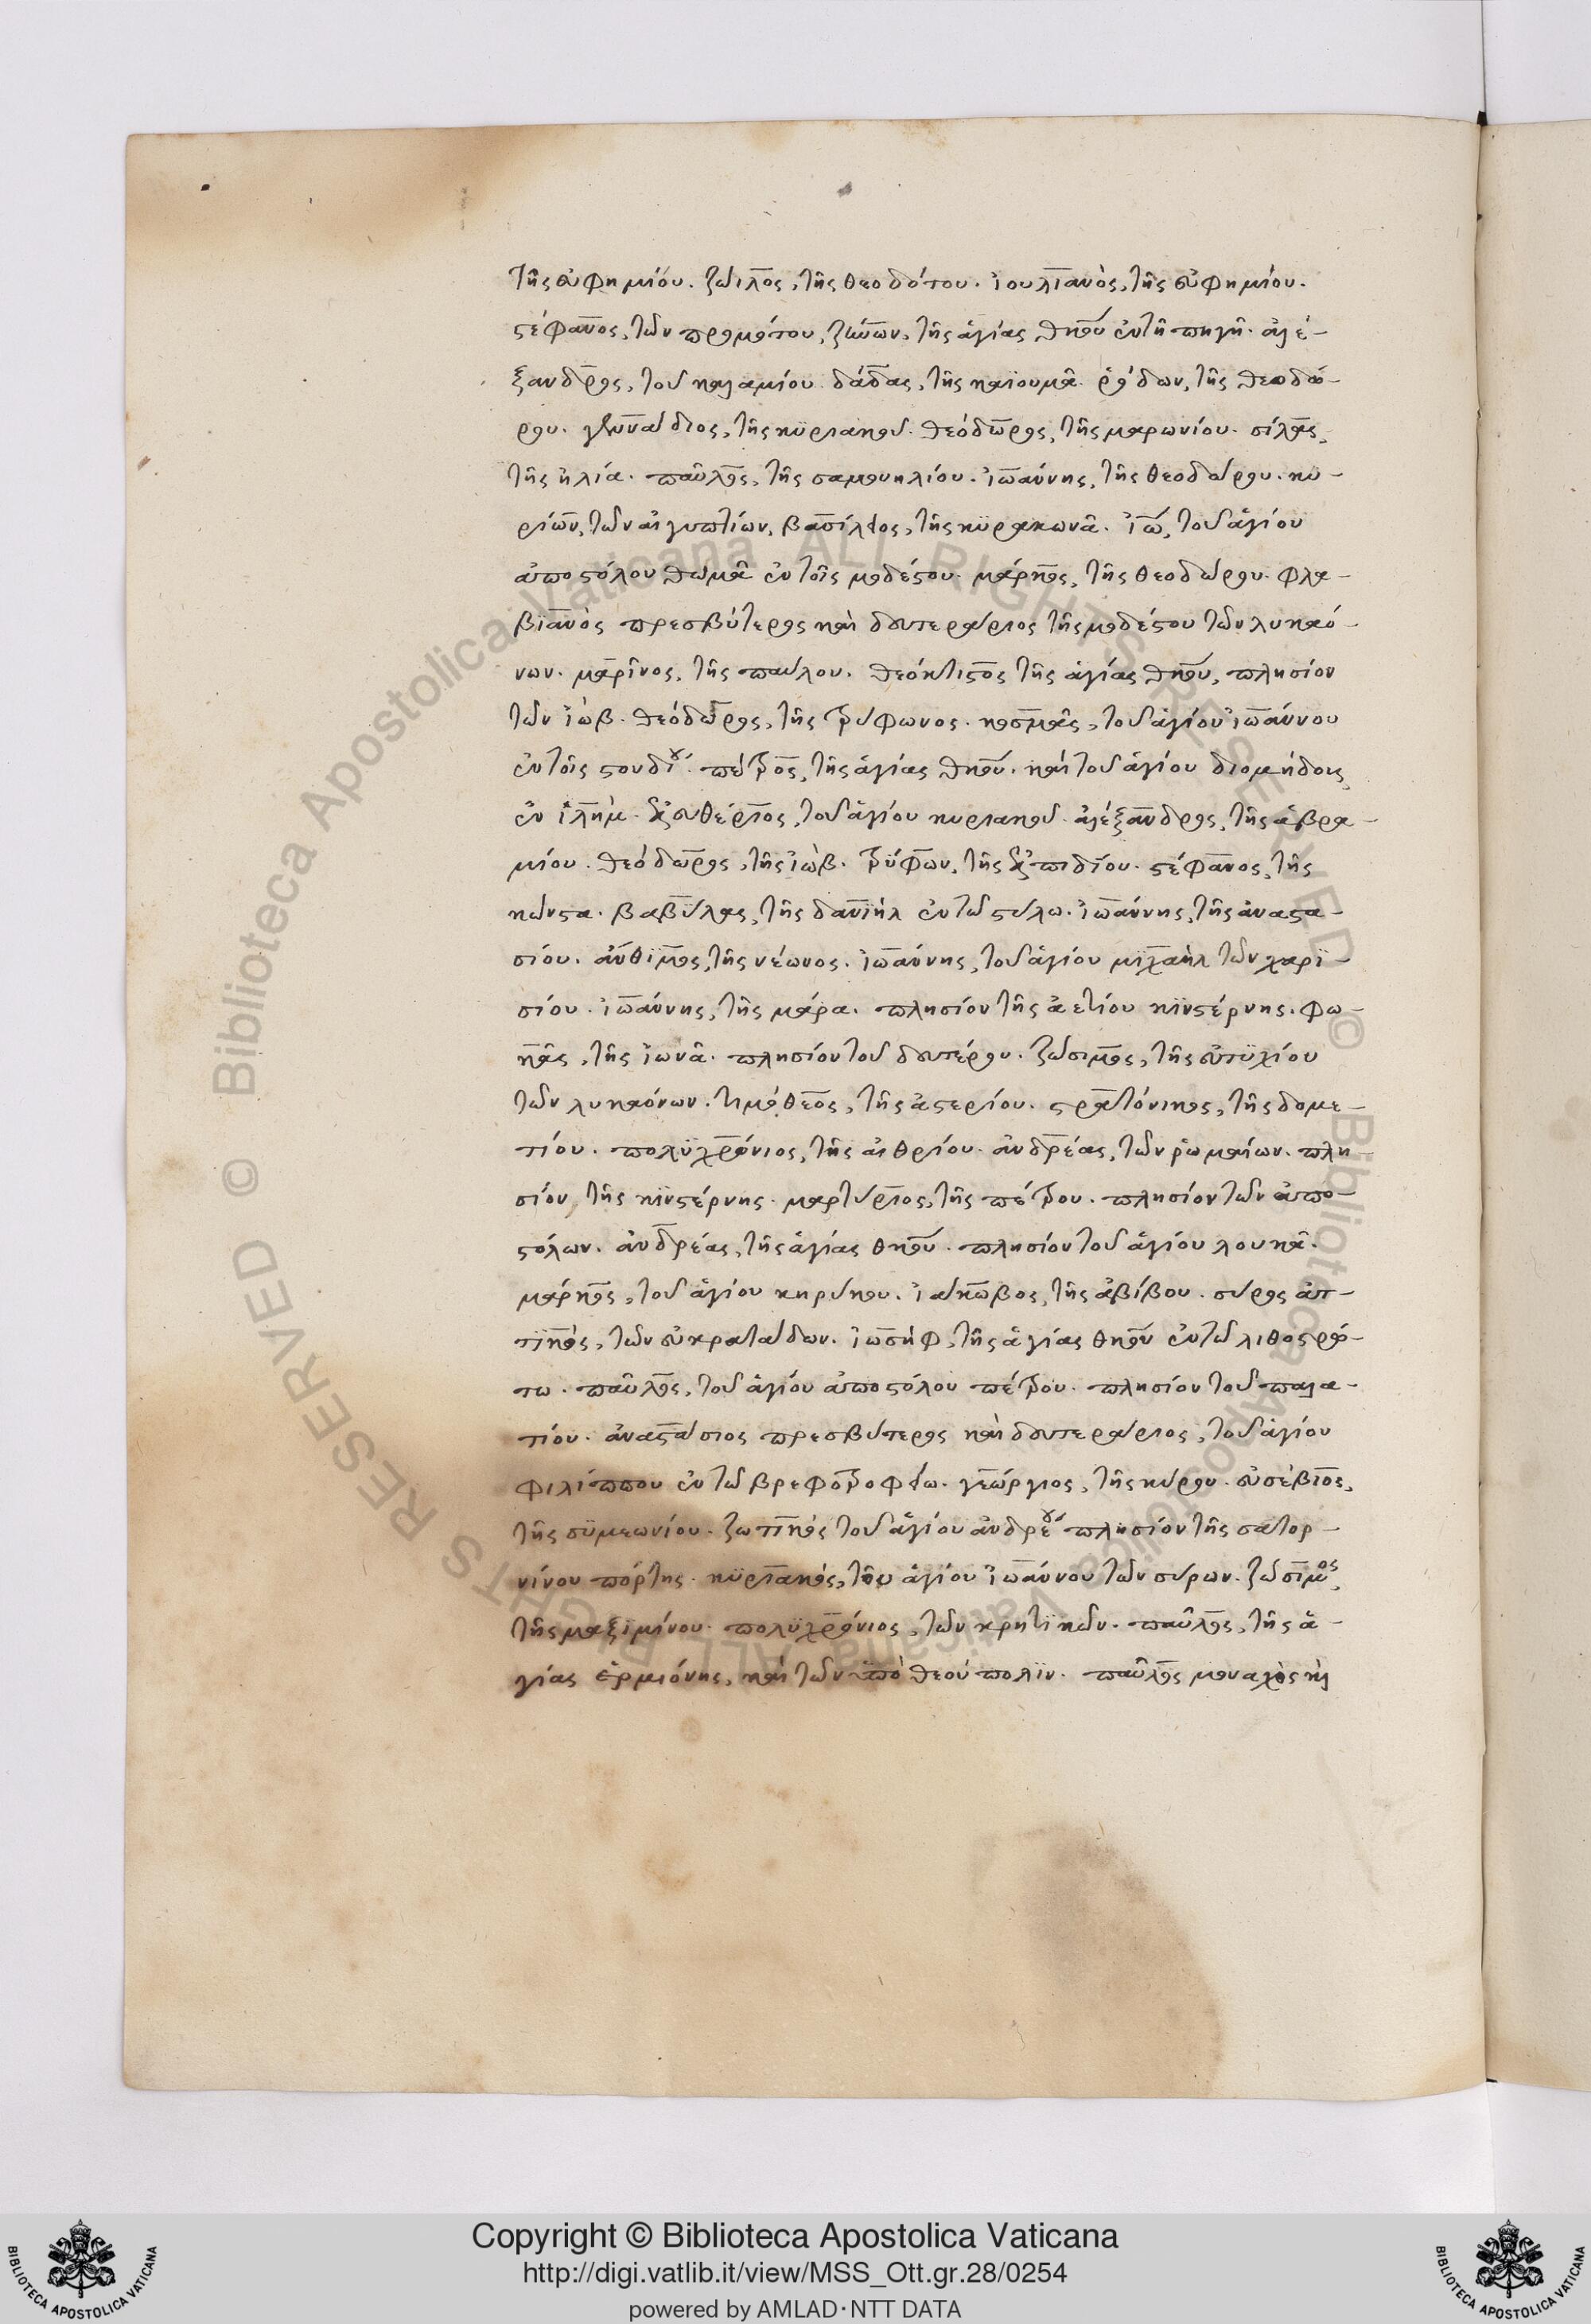 τῆς εὐφημίου. ζώϊλος, τῆς θεοδότου. ἰουλϊανὸς, τῆς εὐφημίου.
στέφανος, τῶν προμότου, ζήνων, τῆς ἁγίας θκου ἐν τῆ πηγῆ. ἀλέ-
ξανδρος, τοῦ καλαμίου. δάδας, τῆς καϊουμᾶ. ῥόδων, τῆς θεοδώ-
ρου. γενάδιος, τῆς κϋριακοῦ. θεόδωρος, τῆς μαρωνίου. σίλας,
τῆς ἠλία. παῦλος, τῆς σαμουηλίου. ἰωάννης, τῆς θεοδώρου. κυ-
ρίων, τῶν αἰγυπτίων, βασίλειος, τῆς κϋρακωνᾶ. ἰω, τοῦ ἁγίου
ἀποστόλου θωμᾶ ἐν τοῖς μοδέστου. μάρκος, τῆς θεοδώρου. φλα-
βϊανὸς πρεσβύτερος καὶ δευτεράριος τῆς μοδέστου τῶν λυκαό-
νων. μαρῖνος, τῆς παύλου. θεόκτιστος τῆς ἁγίας θκου, πλησίον
τῶν ἰὼβ. θεόδωρος, τῆς τρύφωνος. κοσμᾶς, τοῦ ἁγίου ἰωάννου
ἐν τοῖς στουδίου. πέτρος, τῆς ἁγίας θκου. καὶ τοῦ ἁγίου διομήδους
ἐν ἰλημ. ἐλευθέριος, τοῦ ἁγίου κυριακοῦ. ἀλέξανδρος, τῆς ἀβρα-
μίου. θεόδωρος, τῆς ἰὼβ. τρύφων, τῆς ἐλπιδίου. στέφανος, τῆς
κώνστα. βαβύλας, τῆς δανϊὴλ ἐν τῶ στύλω. ἰωάννης, τῆς ἀναστα-
σίου. ἄνθιμος, τῆς νέωνος. ἰωάννης, τοῦ ἁγίου μϊχαὴλ τῶν χαρϊ-
σίου. ἰωάννης, τῆς μάρα. πλησίον τῆς ἀετίου κϊνστέρνης. φω-
κᾶς, τῆς ἰωνᾶ. πλησίον τοῦ δευτέρου. ζώσιμος, τῆς εὐτϋχίου
τῶν λυκαόνων. τιμόθεος, τῆς ἀστερίου. στρατόνικος, τῆς δομε-
τίου. πολϋχρόνιος, τῆς αἰθρίου. ἀνδρέας, τῶν ῥωμαίων. πλη-
σίον, τῆς κϊνστέρνης. μαρτύριος, τῆς πέτρου. πλησίον τῶν ἀπο-
στόλων. ἀνδρέας, τῆς ἁγίας θκου. πλησίον τοῦ ἁγίου λουκᾶ.
μάρκος, τοῦ ἁγίου κηρύκου. ἰάκωβος, τῆς ἀβίβου. σύρος ἀτ-
τικὸς, τῶν εὐκρατάδων. ἰωσὴφ, τῆς ἁγίας θκου ἐν τῶ λιθοστρώ-
τω. παῦλος, τοῦ ἁγίου ἀποστόλου πέτρου. πλησίον τοῦ παλα-
τίου. ἀναστάσιος πρεσβύτερος καὶ δευτεράριος, τοῦ ἁγίου
φιλίππου ἐν τῶ βρεφοτροφείω. γεώργιος, τῆς κύρου. εὐσέβιος,
τῆς σϋμεωνίου. ζωτικὸς τοῦ ἁγίου ἀνδρέου πλησίον τῆς σατορ-
νίνου πόρτης. κϋριακὸς, τοῦ ἁγίου ἰωάννου τῶν σύρων. ζώσιμος,
τῆς μαξϊμίνου. πολϋχρόνιος, τῶν κρητϊκῶν. παῦλος, τῆς ἁ-
γίας ἑρμιόνης, καὶ τῶν ἀπὸ θεοῦ πολϊν. παῦλος μοναχὸς κὶ